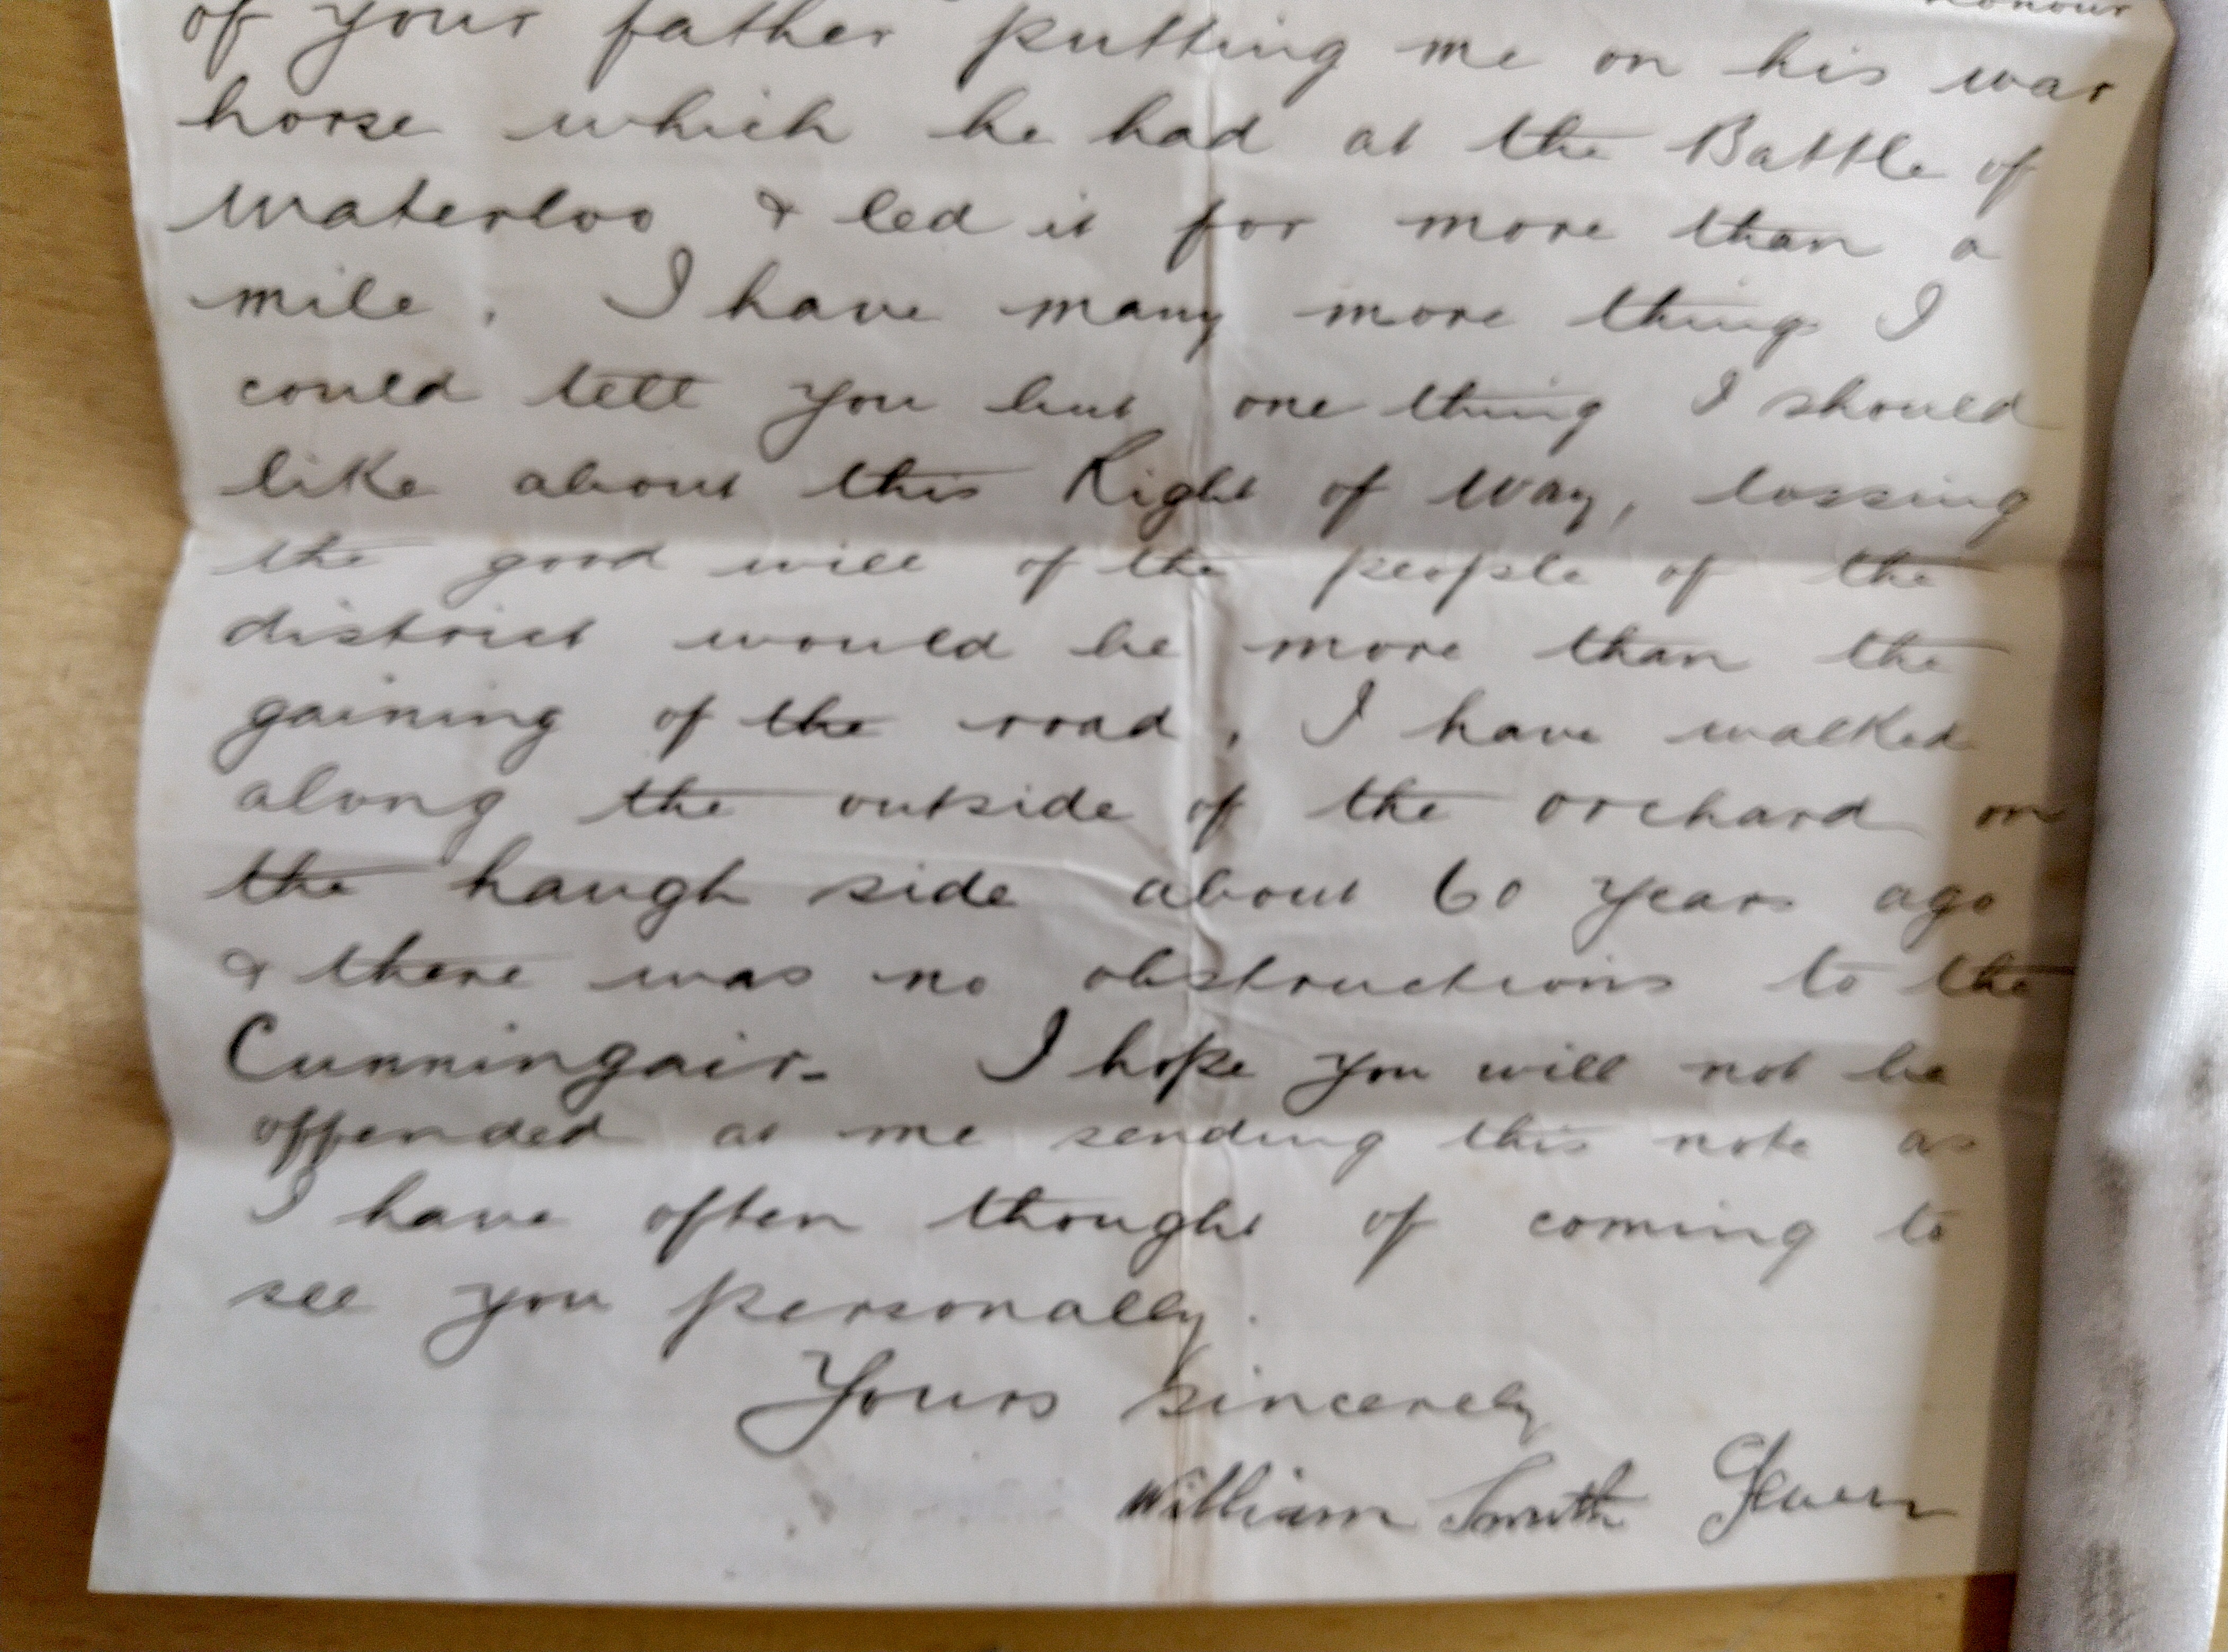 honour
of your father putting me on his war
horse which he had at the Battle of
Waterloo & led it for more than a
mile. I have many more things I
could tell you but one thing I should
like about this Right of Way, lossing
the good will of the people of the
district would be more than the
gaining of the road. I have walked
along the outside of the orchard on
the haugh side about 60 years ago
& there was no obstructions to the
Cunningair. I hope you will not be
offended at me sending this note as
I have often thought of coming to
see you personally.
Yours sincerely
William Smith